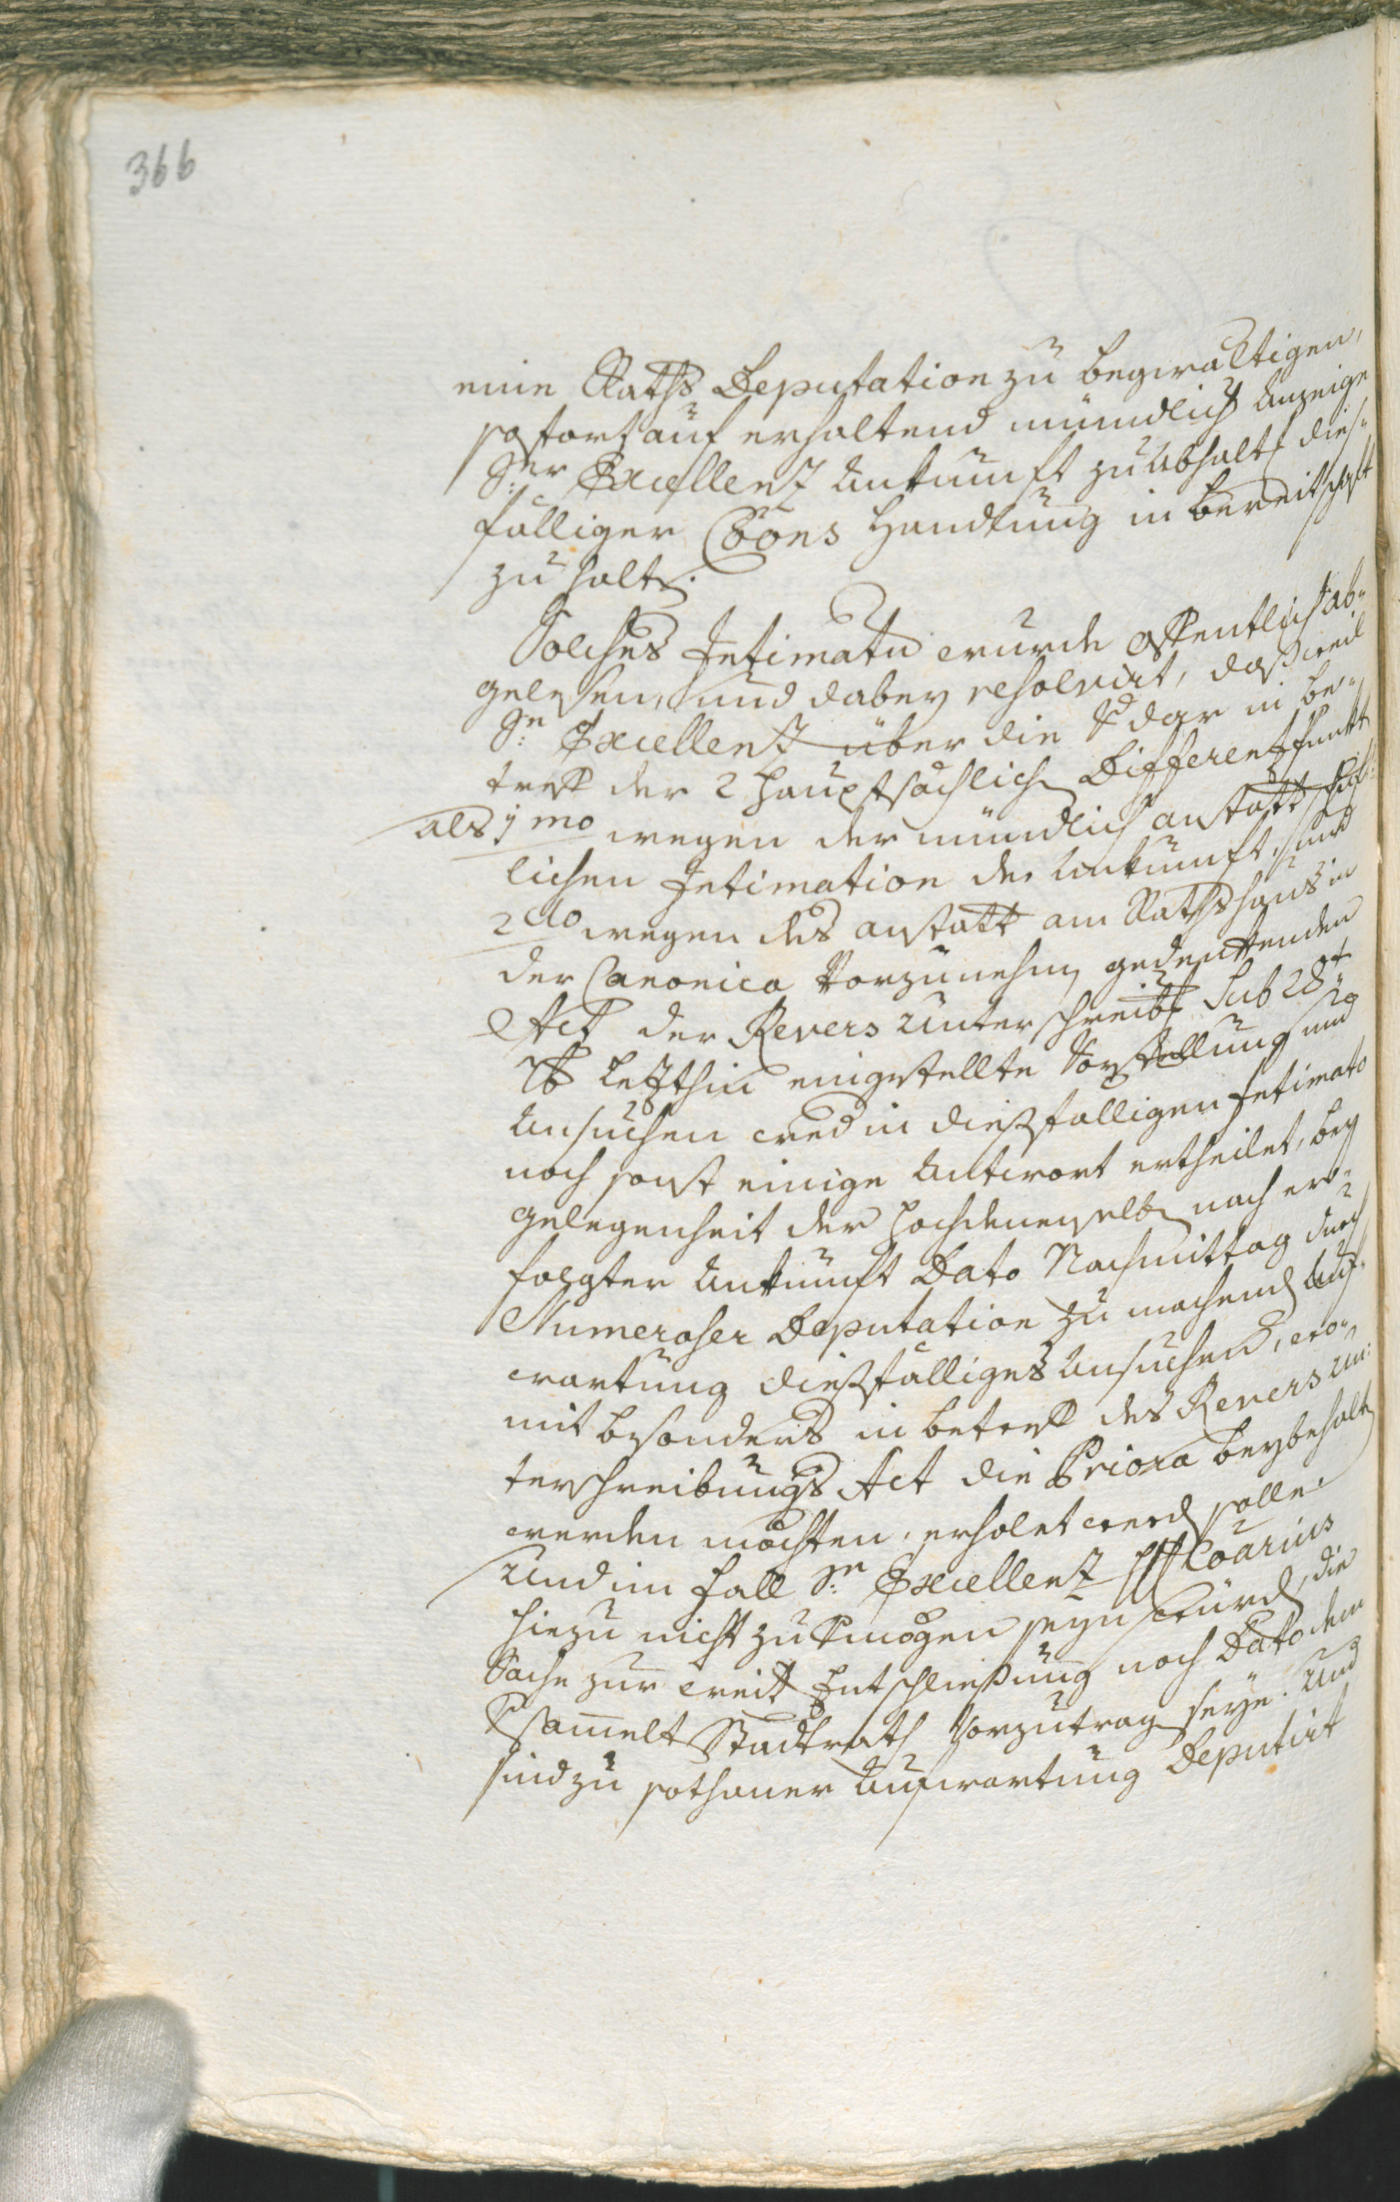 366
eine Raths Deputation zu begwältigen,
sofort auf erhaltend mündlich Anzeige
Sr. Excellenz Ankunft zu Abhalt dies-
fälliger Coons Handlung in bereitschaft
zu halten.
Solches Intimatu wurde offentlich ab-
gelesen, und dabey resolvirt, daß weil
Sr. Excellenz über die in be-
treff der 2 hauptsächlichen Differenzpunkte
als 1mo wegen der mündlich anstatt schrift-
lichen Intimation der Ankunft, und
2do wegen des anstatt am Rathshaus in
der Canonica vorzunehmen gedenkenden
Act der Revers Unterschreibung sub 28
letzthin eingestellte Vorstellung und
Ansuchen weder in dießfälligen Intimato
noch sonst einige Antwort ertheilet, bey
gelegenheit der hochdenenselben nach er-
folgter Ankunft Dato Nachmittag durch
Numeroser Deputation zu machenden Auf-
wartung dießfälliges Ansuchen, wo-
mit besonders in betreff des Revers un-
terschreibungs Act die Priora beybehalten
werden möchten, erholet werden solle.
Und im fall Sr. Excellenz Coarius
hiezu nicht zu vermögen seyn würde, die
Sache zur weiteren Entschließung noch Dato dem
Versammelt Stadtrath vorzutragen seye. Und
sind zu sothaner Aufwartung Deputirt